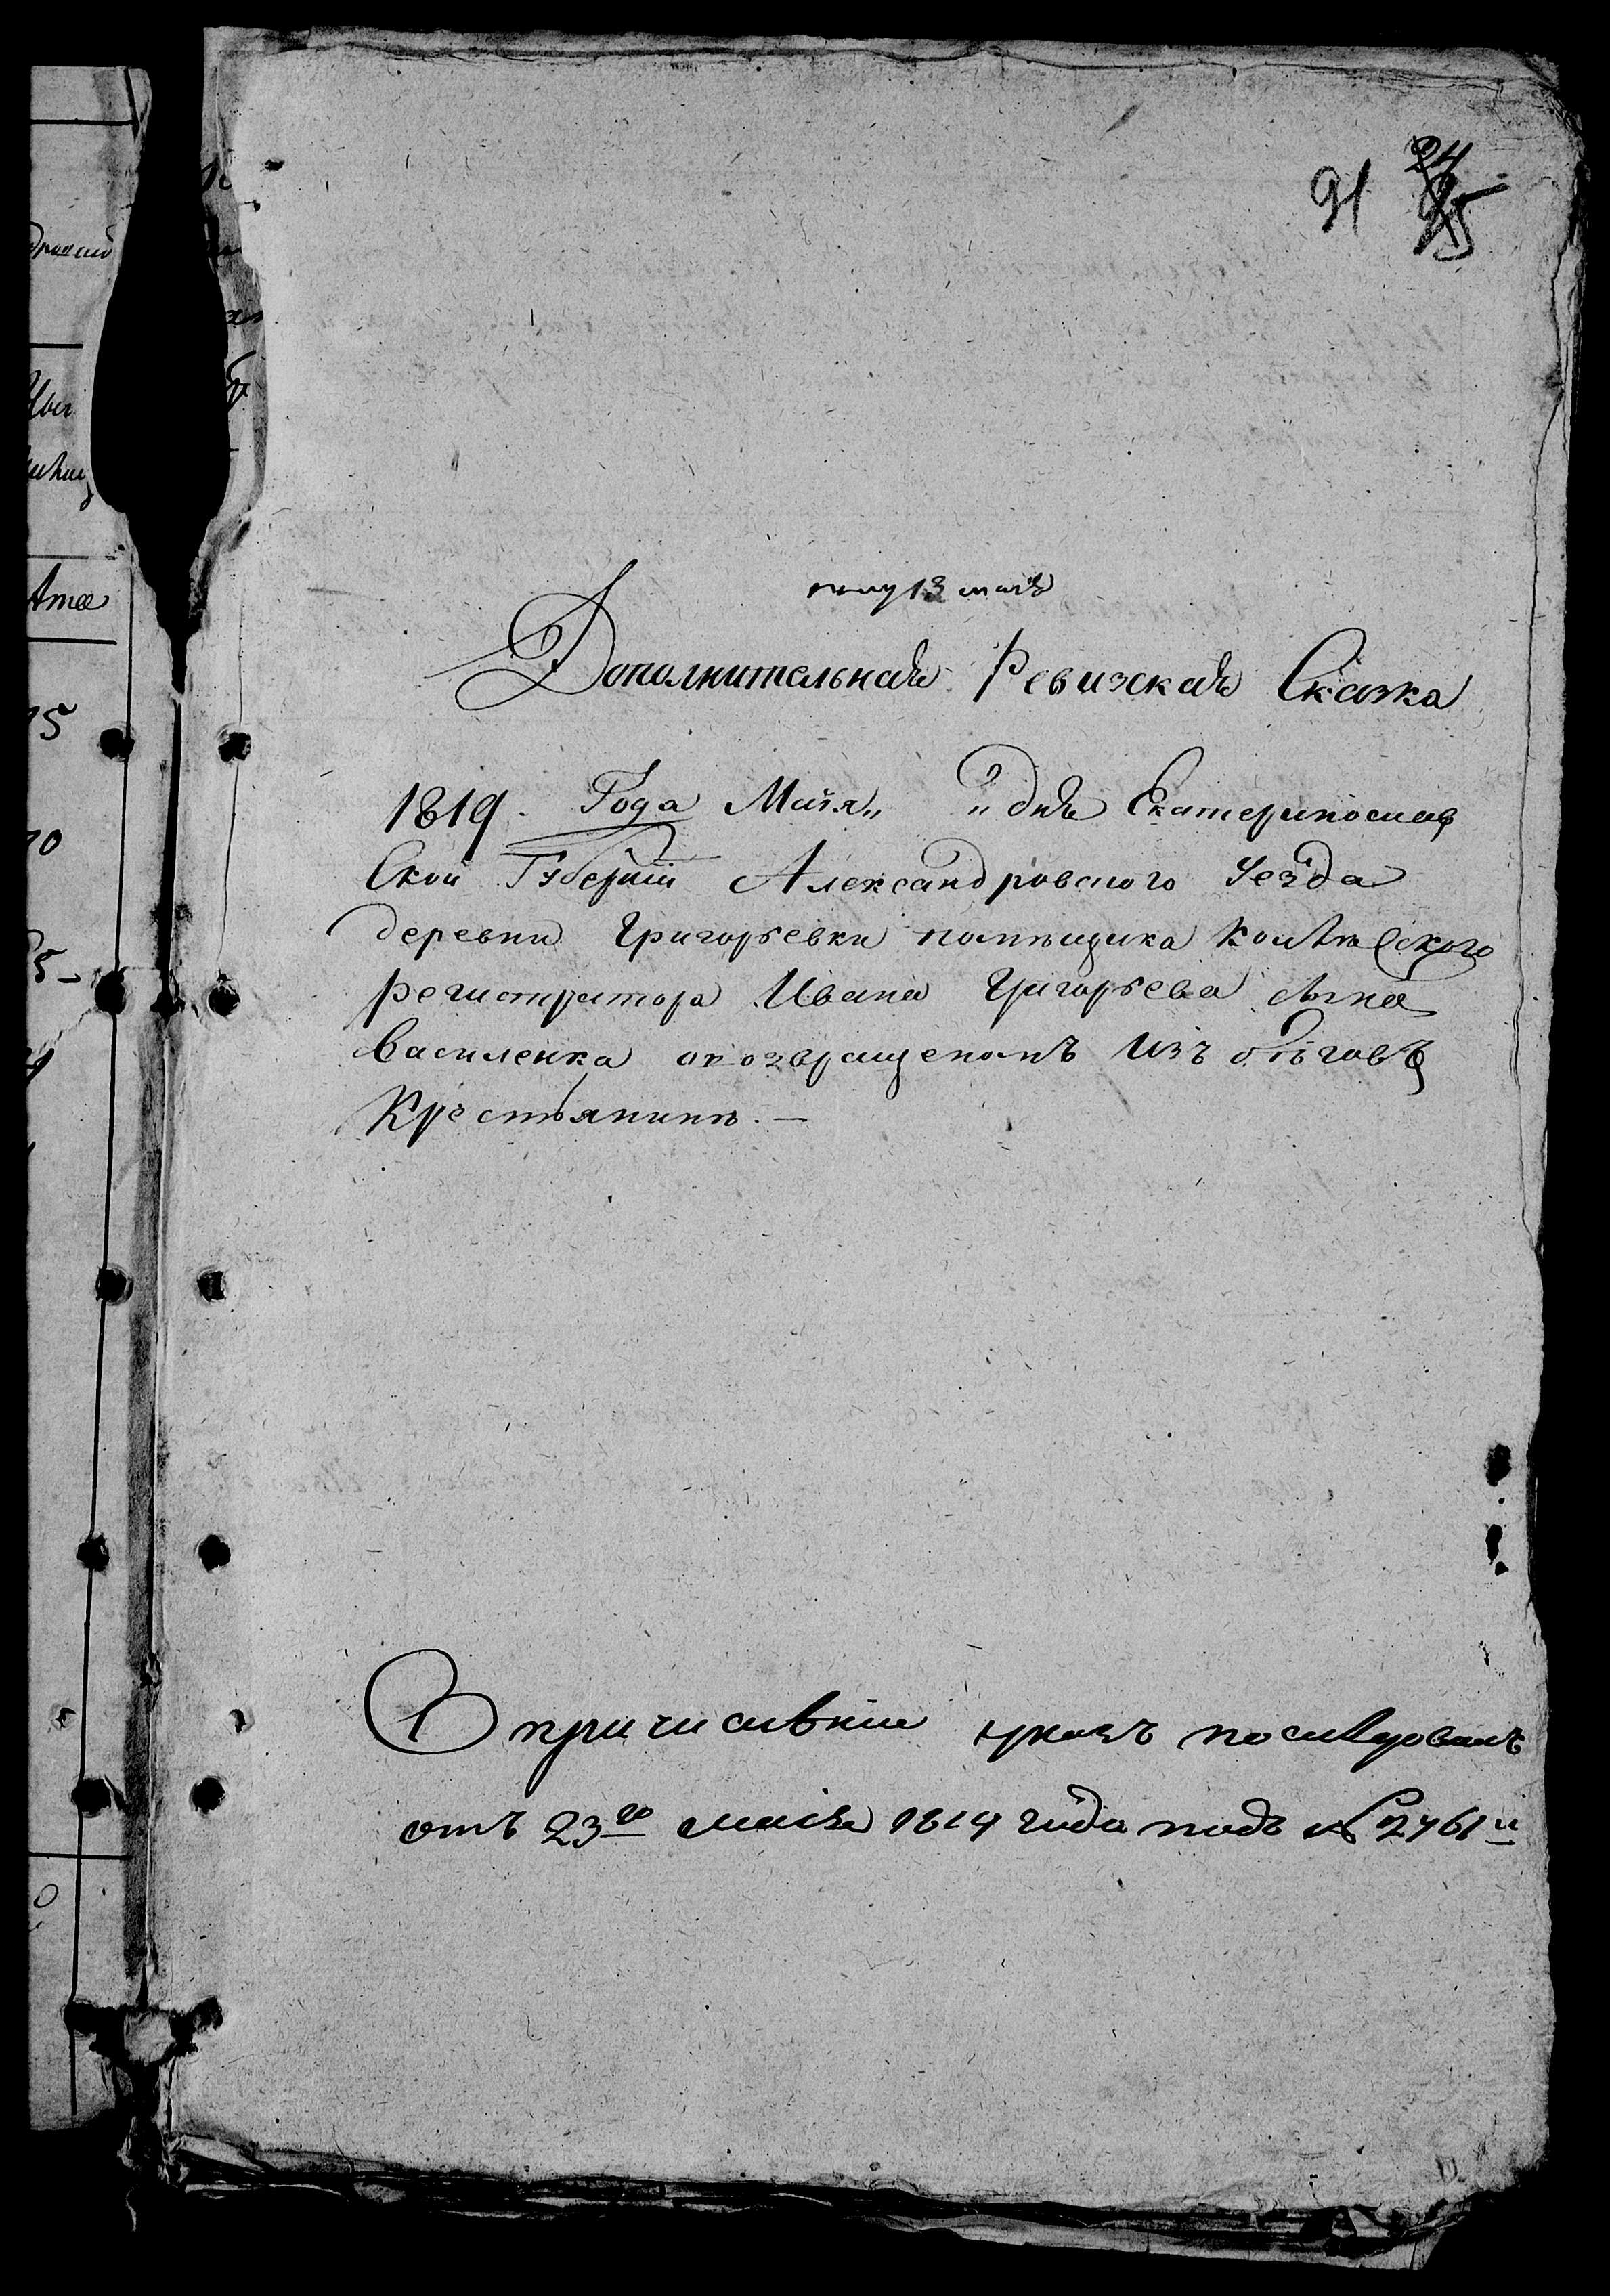 91 24
полу 13 маія
Дополнительная Ревизская Сказка
1819. Года Маія „ „ дня Екатеринослав
ской Губерніи Александровского Уезда
деревни Григорьевки помѣщика колѣжского
регистратора Ивана Григорьева сына
Василенка о возвращеномъ изъ бѣговъ
Крестьянинѣ. —
О причислѣніи указъ последовалъ
отъ 23го маія 1819 года подъ № 2761м